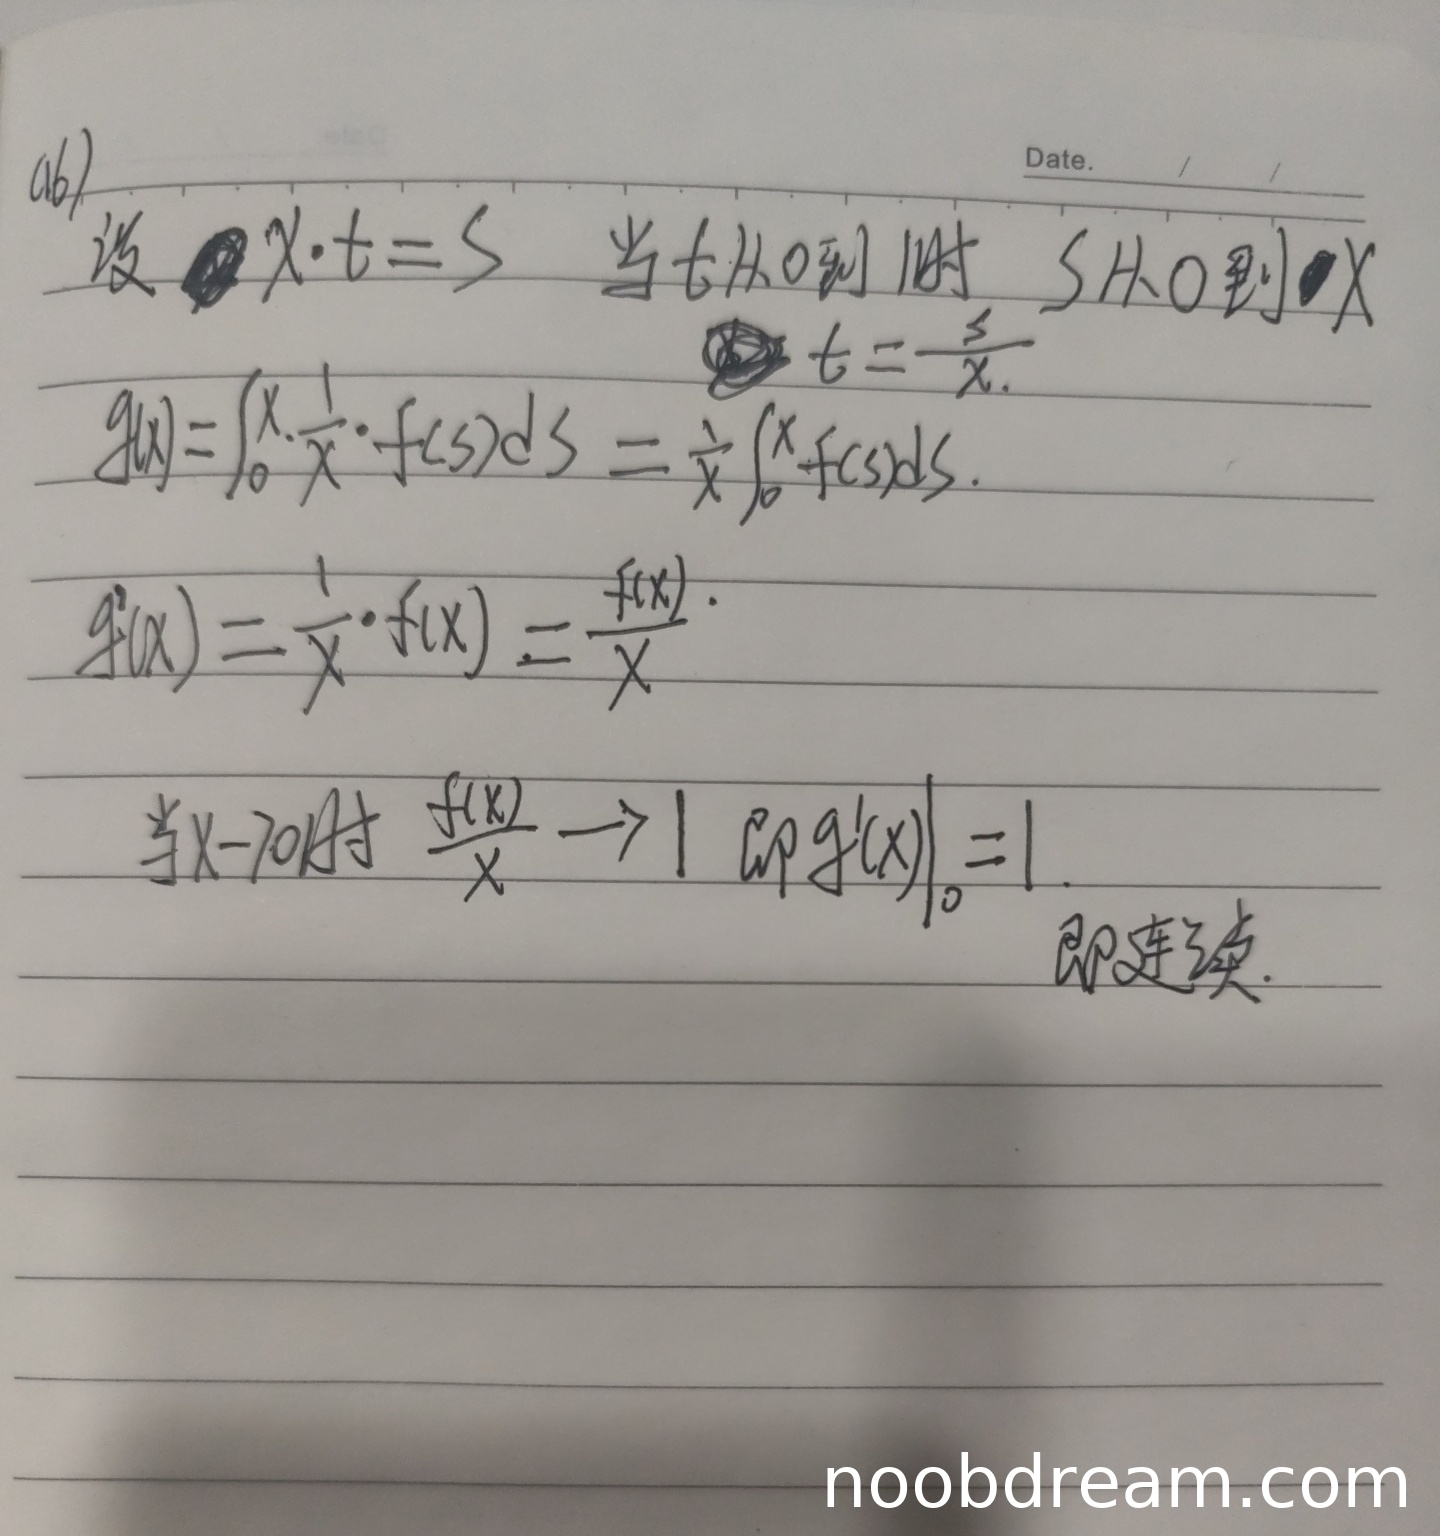 Date. / /
(16)
设 x·t=s 当t从0到1时 s从0到x
t=s/x.
g(x)=∫₀ˣ·1/x·f(s)ds=1/x∫₀ˣf(s)ds.
g'(x)=1/x·f(x)=f(x)/x.
当x->0时 f(x)/x→1 即g'(x)|₀=1.
即连续.
noobdream.com